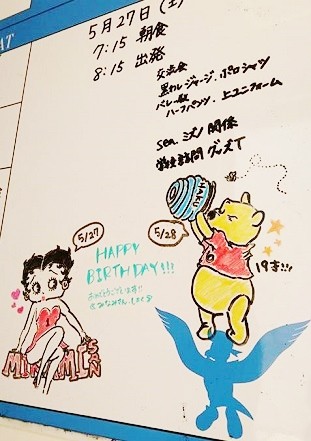 AT
5月27日(土)
7:15 朝食
8:15 出発
交流会
黒カレジャージ・ポロシャツ
バレー教
ハーフパンツ・上ユニフォーム
sea. ミズノ 関係
訪問 グッズT
5/27
HAPPY
BIRTHDAY!!!
おめでとうございます!!
5/28
HUNNY
19才!!!
MINAMI SAN